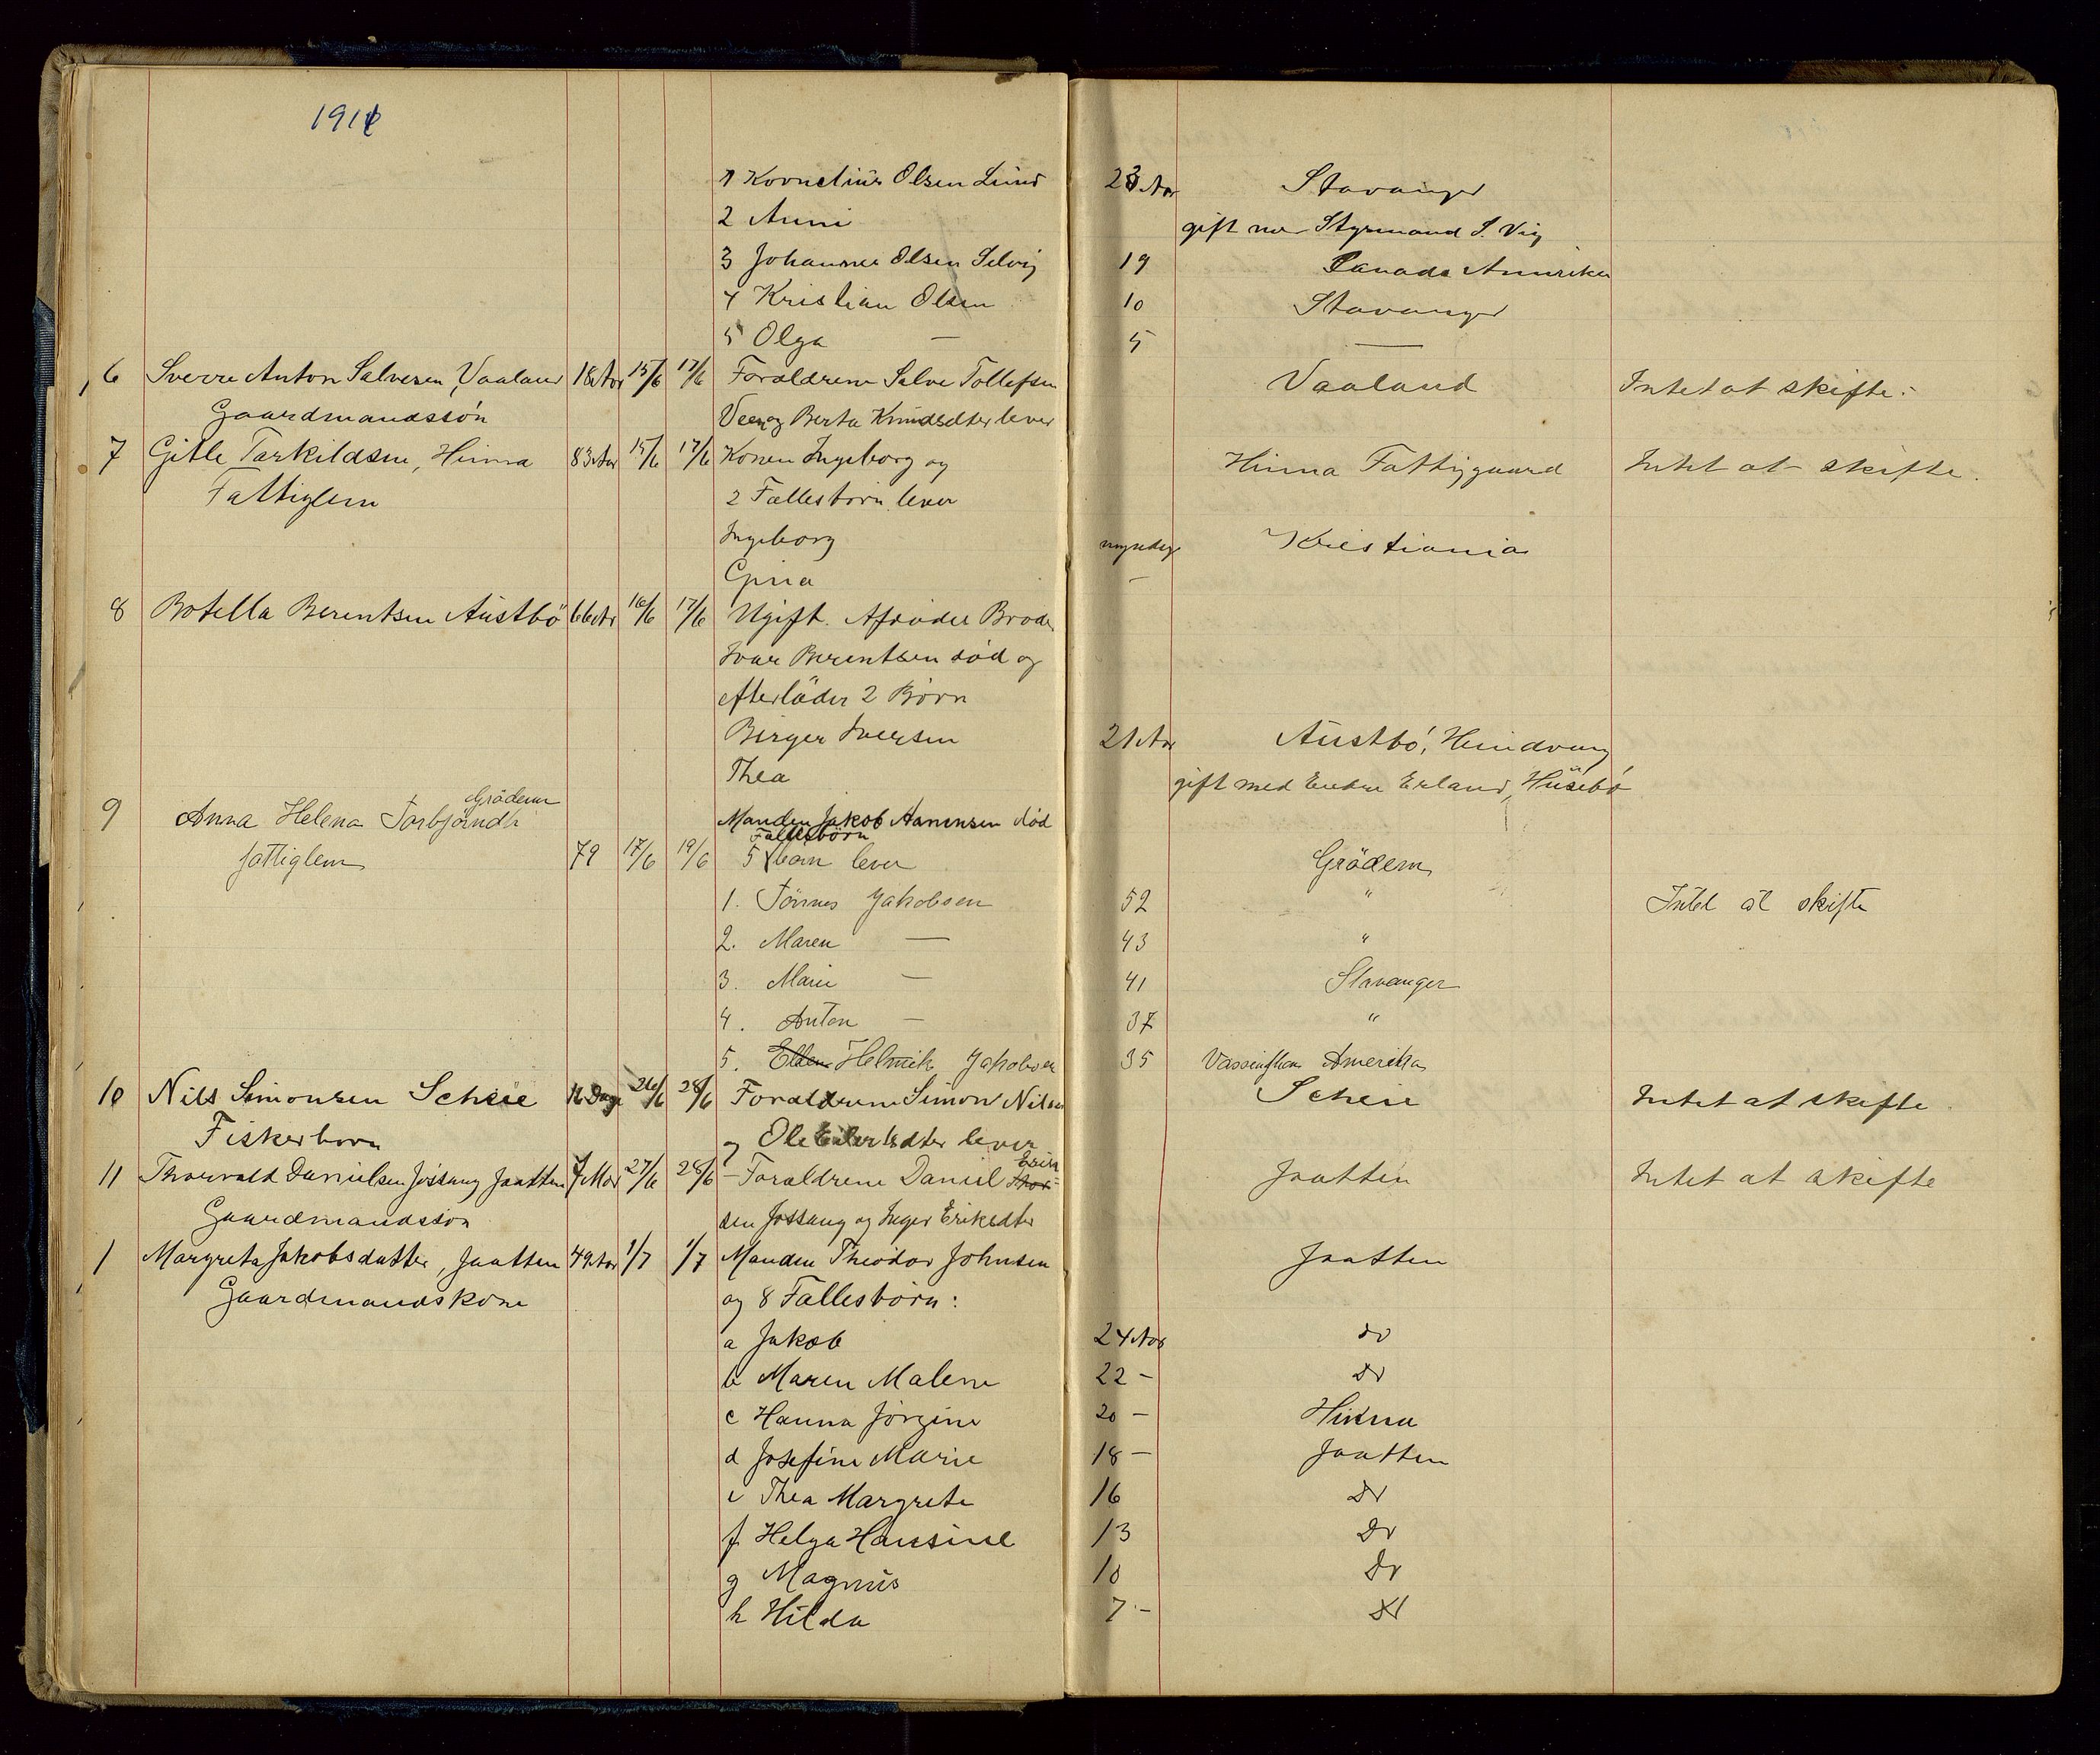 191
1 Kornelius Olsen Lund 23 Aar Stavanger
2 Anni gift med Styrmand S. Vig
3 Johannes Olsen Selvig 19 Canada Amerika
4 Kristian Olsen 10 Stavanger
5 Olga — 5 —
6 Sverre Anton Salvesen, Vaaland 18 Aar 15/6 17/6 Forældrene Salve Tollefsen Vaaland Intet at skifte.
Gaardmandssön og Berta Knudsdter lever
7 Gitle Tarkildsen, Hinna 83 Aar 15/6 17/6 Konen Ingeborg og Hinna Fattiggaard Intet at skifte.
Fattiglem 2 Fællesbörn lever
Ingeborg myndige Kristiania
Gina —
8 Botella Berentsen Austbö 66 Ar 16/6 17/6 Ugift. Afdöde Broder
Ivar Berentsen död og
efterlader 2 Börn
Birger Iversen 21 Aar Austbö, Hundvaag
Thea gift med Endre Erland, Husebö
9 Anna Helena Torbjörnd. Grödem Manden Jakob Aanensen död
Fællesbörn
fattiglem 79 17/6 19/6 5 barn lever Grödem
1. Tönnes Jakobsen 52 " Intet at skifte
2. Maren — 43 "
3. Marie — 41 Stavanger
4. Anton — 37 "
5. Ellen Helmik Jakobsen 35 Vassingthon Amerika
10 Nils Simonsen Scheie 16 Dage 26/6 28/6 Forældrene Simon Nilsen Scheie Intet at skifte
Fiskerbarn og Ole Eilertsdter lever
11 Thorvald Danielsen Jössang Jaatten 7 Mdr 27/6 28/6 — Forældrene Daniel Thor- Erik= Jaatten Intet at skifte
Gaardmandssön sen Jössang og Inger Eriksdter
1 Margreta Jakobsdatter, Jaatten 49 Aar 1/7 1/7 Manden Theodor Johnsen Jaatten
Gaardmandskone og 8 Fællesbörn:
a Jakob 24 Aar do
b Maren Malene 22 - do
c Hanna Jörgine 20 — Hinna
d Josefine Marie 18 — Jaatten
e Thea Margrete 16 do
f. Helga Hansine 13 do
g Magnus 10 do
h Hilda 7 - do